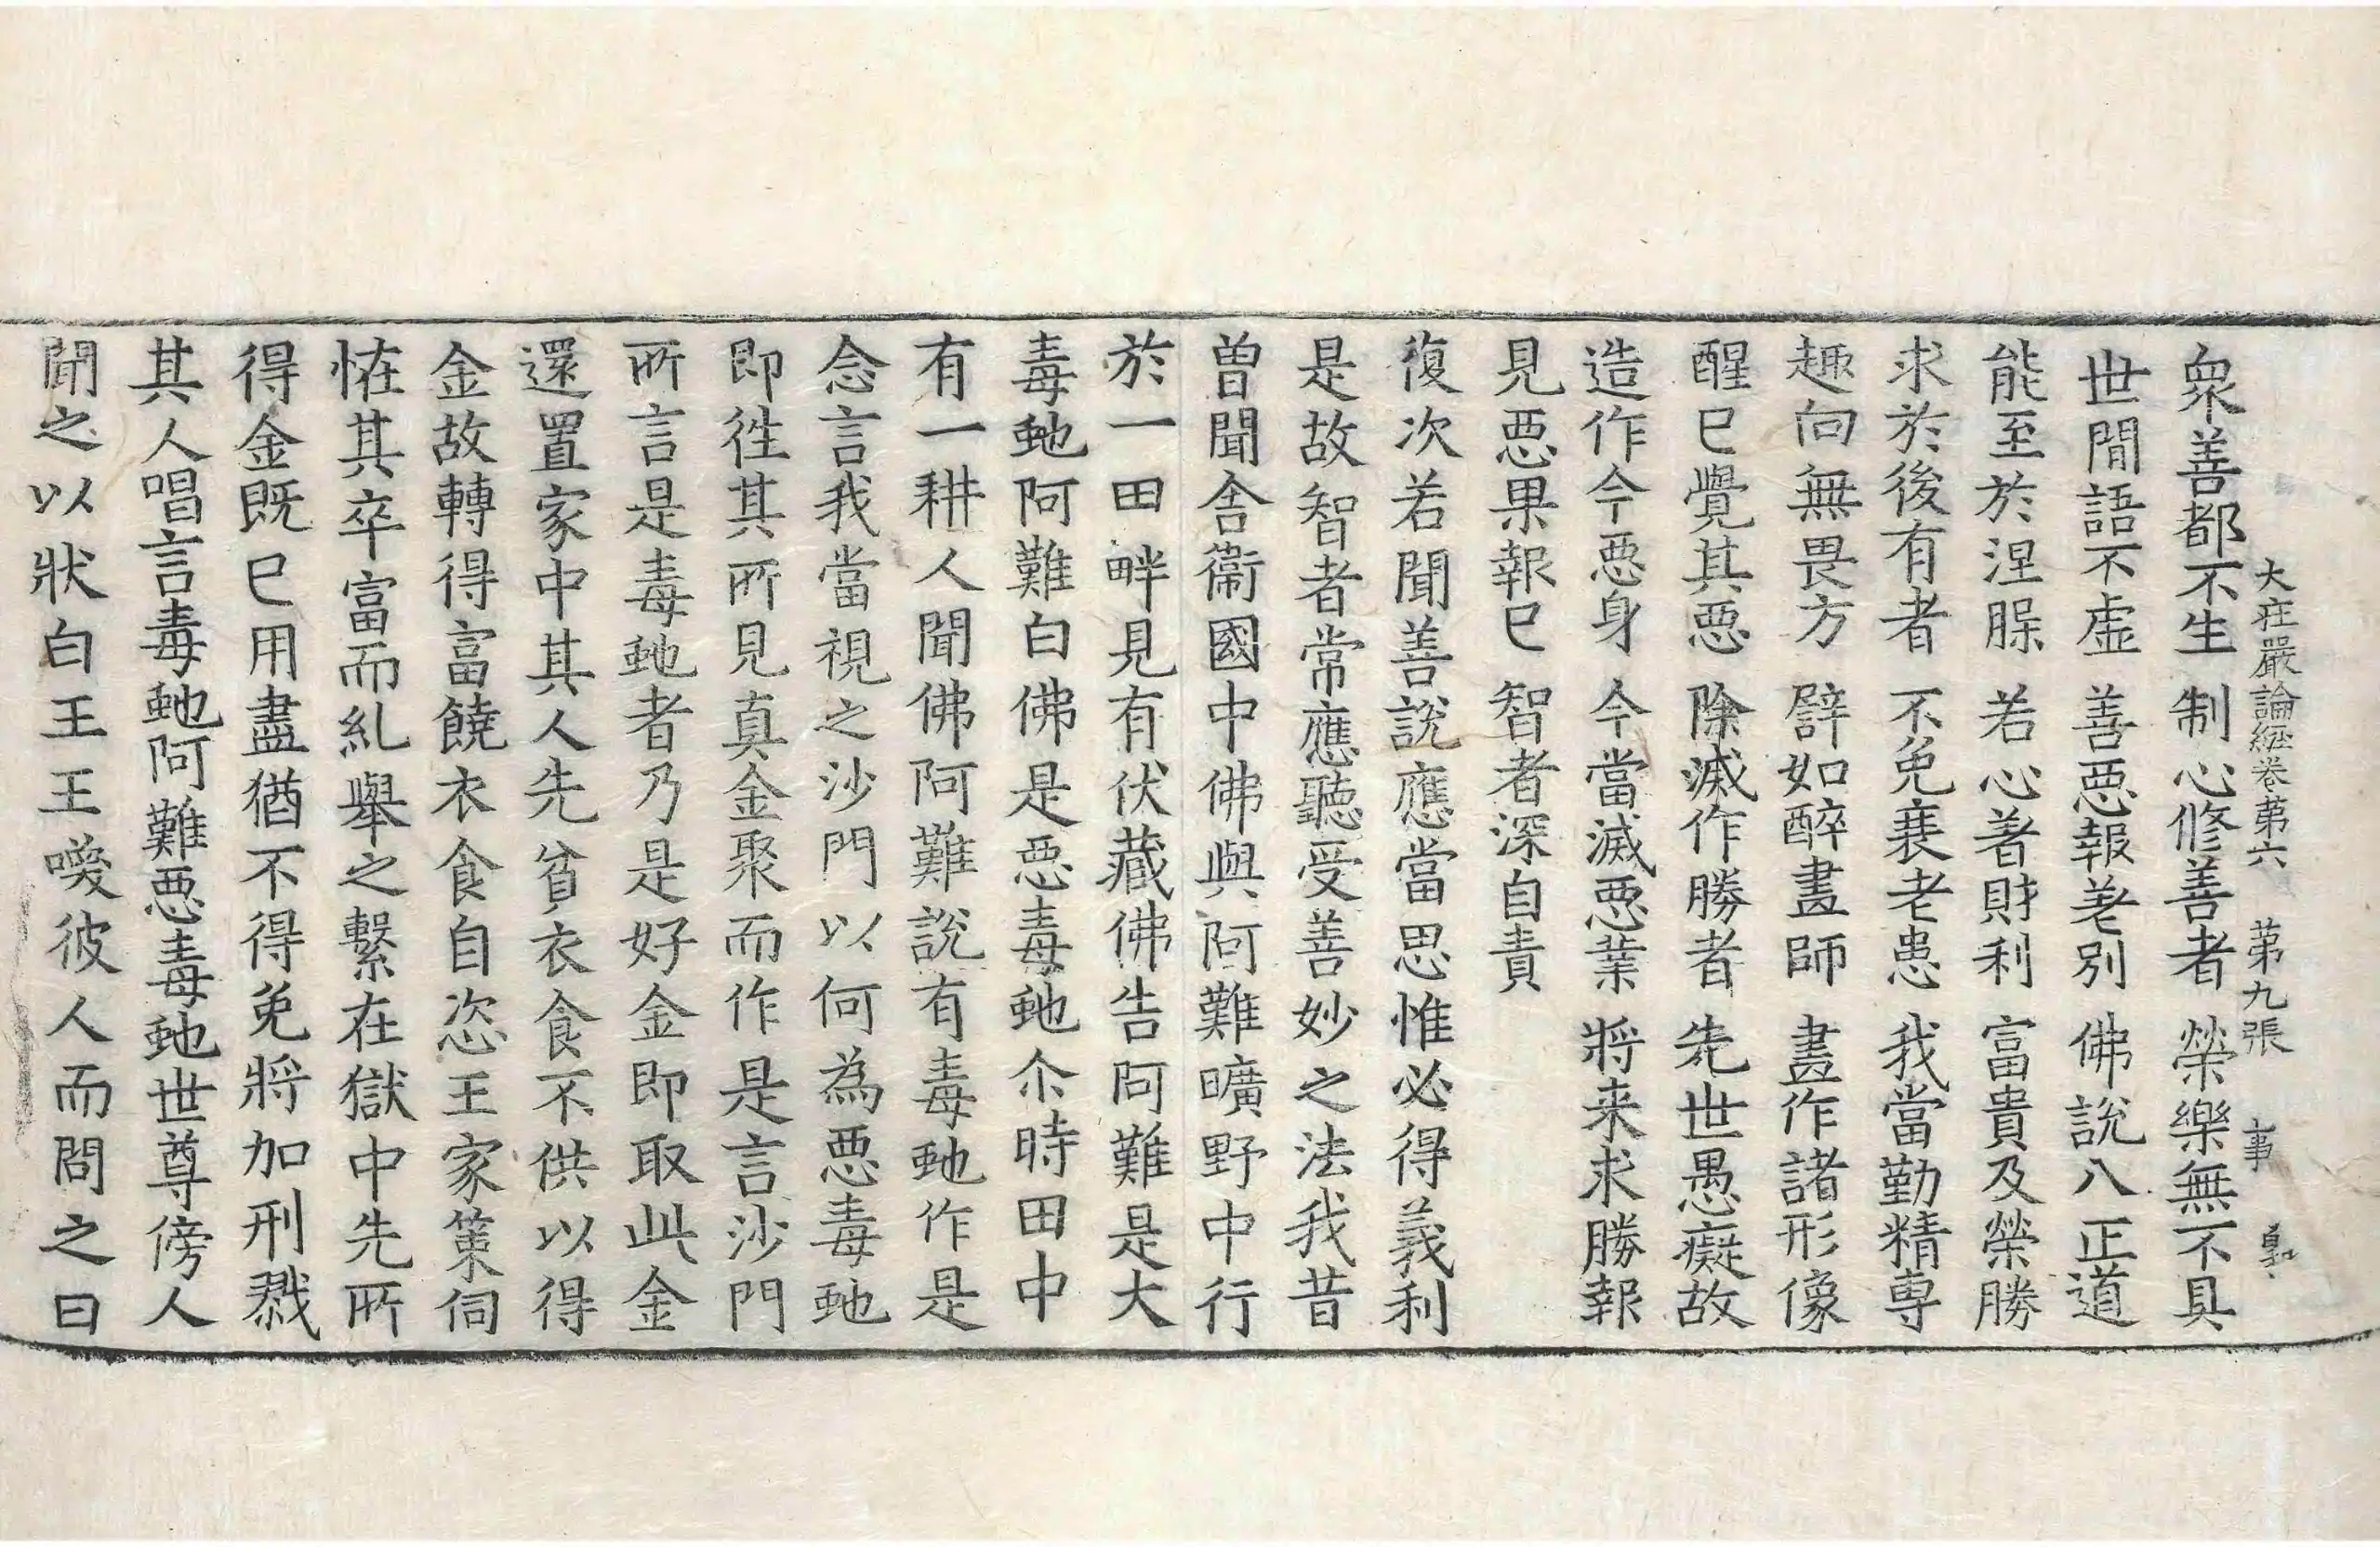 大莊嚴論經卷第六 第九張 事
眾善都不生 制心修善者 榮樂無不具
世間語不虛 善惡報差別 佛說八正道
能至於涅脲 若心著財利 富貴及榮勝
求於後有者 不免衰老患 我當勤精專
趣向無畏方 譬如醉畫師 畫作諸形像
醒已覺其惡 除滅作勝者 先世愚癡故
造作今惡身 今當滅惡業 將来求勝報
見惡果報已 智者深自責
復次若聞善說應當思惟必得義利
是故智者常應聽受善妙之法我昔
曾聞舍衛國中佛與阿難曠野中行
於一田畔見有伏藏佛告阿難是大
毒虵阿難白佛是惡毒虵尒時田中
有一耕人聞佛阿難說有毒虵作是
念言我當視之沙門以何為惡毒虵
即往其所見真金聚而作是言沙門
所言是毒虵者乃是好金即取此金
還置家中其人先貧衣食不供以得
金故轉得富饒衣食自恣王家策伺
恠其卒富而糺舉之繫在獄中先所
得金既已用盡猶不得免將加刑戮
其人唱言毒虵阿難惡毒虵世尊傍人
聞之以狀白王王喚彼人而問之曰